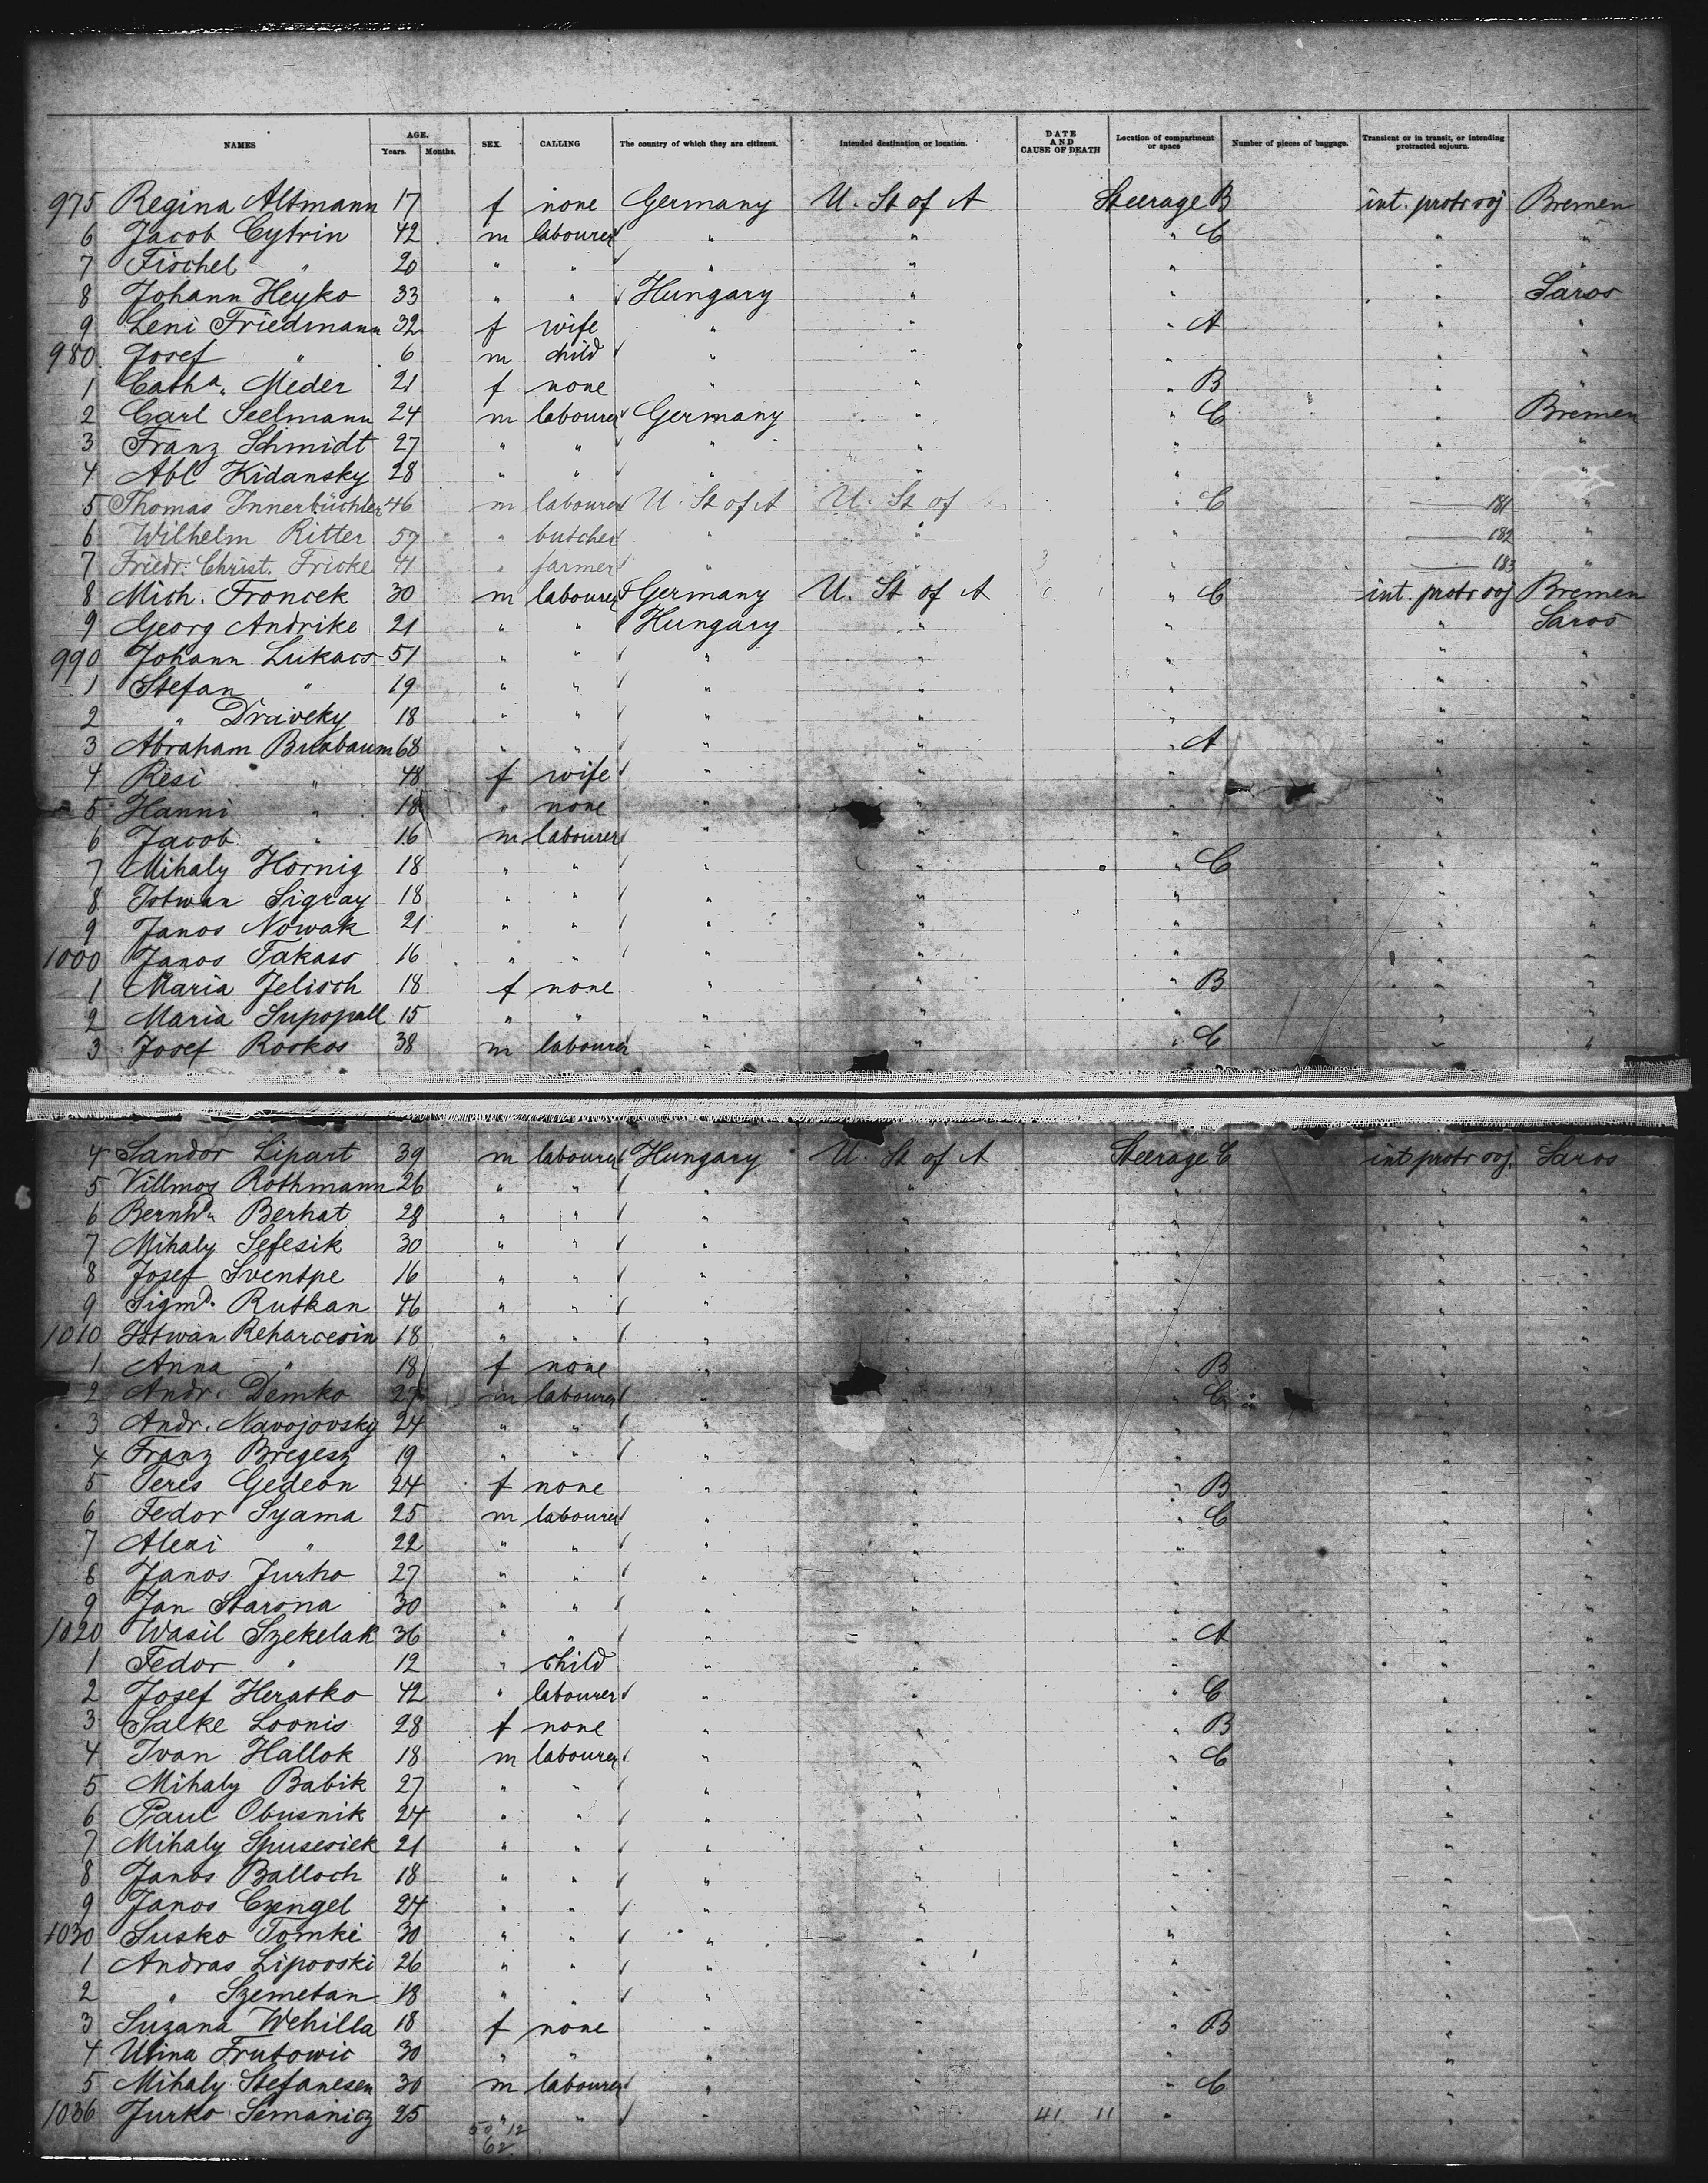 NAMES AGE. Years. Months. SEX. CALLING The country of which they are citizens. Intended destination or location. DATE AND CAUSE OF DEATH Location of compartment or space Number of pieces of baggage. Transient or in transit, or intending protracted sojourn.
975 Regina Altmann 17 f none Germany U. St of A Steerage B int. protr soj Bremen
6 Jacob Cytrin 42 m labourer " " " C " "
7 Fischel " 20 " " " " " " "
8 Johann Heyko 33 " " Hungary " " " Saros
9 Leni Friedmann 32 f wife " " " A " "
980 Josef " 6 m child " " " " "
1 Catha. Meder 21 f none " " " B " "
2 Carl Seelmann 24 m labourer Germany " " C " Bremen
3 Franz Schmidt 27 " " " " " " "
4 Abl Kidansky 28 " " " " " " "
5 Thomas Innerbüchler 46 m labourer U. St of A U. St of " C 181 "
6 Wilhelm Ritter 57 " butcher " " " 182 "
7 Friedr. Christ. Fricke 41 " farmer " " 183 "
8 Mich. Froncek 30 m labourer Germany U. St of A " C int. protr soj Bremen
9 Georg Andrike 21 " " Hungary " " " Saros
990 Johann Lukacs 51 " " " " " " "
1 Stefan " 19 " " " " " " "
2 " Draveky 18 " " " " " " "
3 Abraham Buxbaum 68 " " " " " A " "
4 Resi " 48 f wife " " " " "
5 Hanni " 18 " none " " " "
6 Jacob " 16 m labourer " " " " "
7 Mihaly Hornig 18 " " " " " C " "
8 Istwan Sigray 18 " " " " " " "
9 Janos Nowak 21 " " " " " " "
1000 Janos Takass 16 " " " " " " "
1 Maria Jelisch 18 f none " " " B " "
2 Maria Supopall 15 " " " " " " "
3 Josef Roskos 38 m labourer " " " C " "
4 Sandor Lipart 39 m labourer Hungary U. St of A Steerage C int protr soj. Saros
5 Villmos Rothmann 26 " " " " " " "
6 Bernhd. Berhat 28 " " " " " " "
7 Mihaly Sefesik 30 " " " " " " "
8 Josef Sventpe 16 " " " " " " "
9 Sigmd. Rutkan 46 " " " " " " "
1010 Istwan Reharcesin 18 " " " " " " "
1 Anna " 18 f none " " B " "
2 Andr. Demko 27 m labourer " " C " "
3 Andr. Navojovsky 24 " " " " " "
4 Franz Bregesz 19 " " " " " " "
5 Teres Gedeon 24 f none " " " B " "
6 Fedor Syama 25 m labourer " " " C " "
7 Alexi " 22 " " " " " " "
8 Janos Jurho 27 " " " " " " "
9 Jan Starona 30 " " " " " " "
1020 Wasil Szekelak 36 " " " " " A " "
1 Fedor " 12 " child " " " " "
2 Josef Heratko 42 " labourer " " " C " "
3 Salke Loonis 28 f none " " " B " "
4 Ivan Hallok 18 m labourer " " " C " "
5 Mihaly Babik 27 " " " " " " "
6 Paul Obusnik 24 " " " " " " "
7 Mihaly Spusesiek 21 " " " " " " "
8 Janos Balloch 18 " " " " " " "
9 Janos Czengel 24 " " " " " " "
1030 Susko Tomki 30 " " " " " " "
1 Andras Lipovski 26 " " " " " " "
2 " Szemetan 18 " " " " " " "
3 Suzana Wehilla 18 f none " " " B " "
4 Ulina Frutowic 30 " " " " " " "
5 Mihaly Stefanesen 30 m labourer " " " C " "
1036 Jurko Semanicz 25 " " " " 41 11 " " "
50 12
62